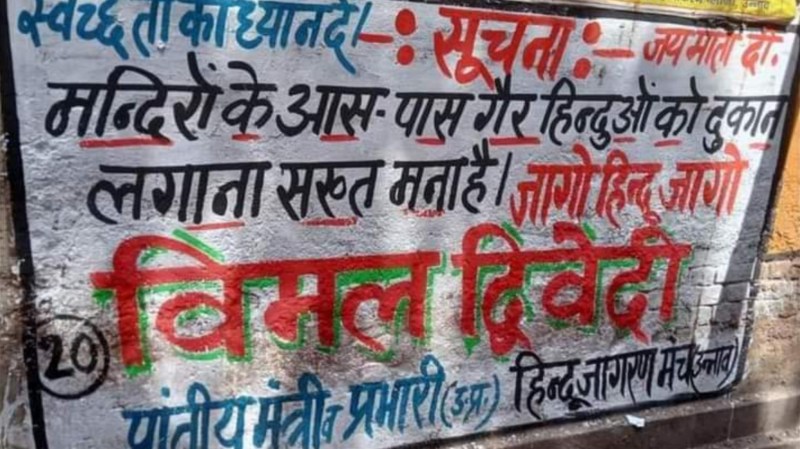 स्वच्छता का ध्यान दें। -: सूचना :- जय माता दी.
मन्दिरों के आस-पास गैर हिन्दुओं को दुकान
लगाना सख्त मना है। जागो हिन्दू जागो
विमल द्विवेदी
20
प्रांतीय मंत्री व प्रभारी (उ.प्र.) हिन्दू जागरण मंच (उन्नाव)